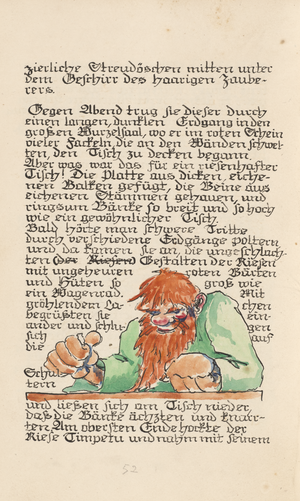 zierliche Streudöschen mitten unter
dem Geschirr des haarigen Zaube-
rers.
Gegen Abend trug sie dieser durch
einen langen, dunklen Erdgang in den
großen Wurzelsaal, wo er im roten Schein
vieler Fackeln die an den Wänden schwel-
ten, den Tisch zu decken begann.
Aber was war das für ein riesenhafter
Tisch! Die Platte aus dicken, eiche-
nen Balken gefügt, die Beine aus
eichenen Stämmen gehauen, und
ringsum Bänke so breit und so hoch
wie ein gewöhnlicher Tisch.
Bald hörte man schwere Tritte
durch verschiedene Erdgänge poltern
und da kamen sie an, die ungeschlach-
ten (der Riesen) Gestalten der Riesen
mit ungeheuren roten Bärten
und Hüten so groß wie
ein Wagenrad. Mit
gröhlendem La- chen
begrüßten sie ein-
ander und schlu- gen
sich auf
die
Schul-
tern
und ließen sich am Tisch nieder,
daß die Bänke ächzten und knarr-
ten. Am obersten Ende hockte der
Riese Timpetu und nahm mit seinem
52